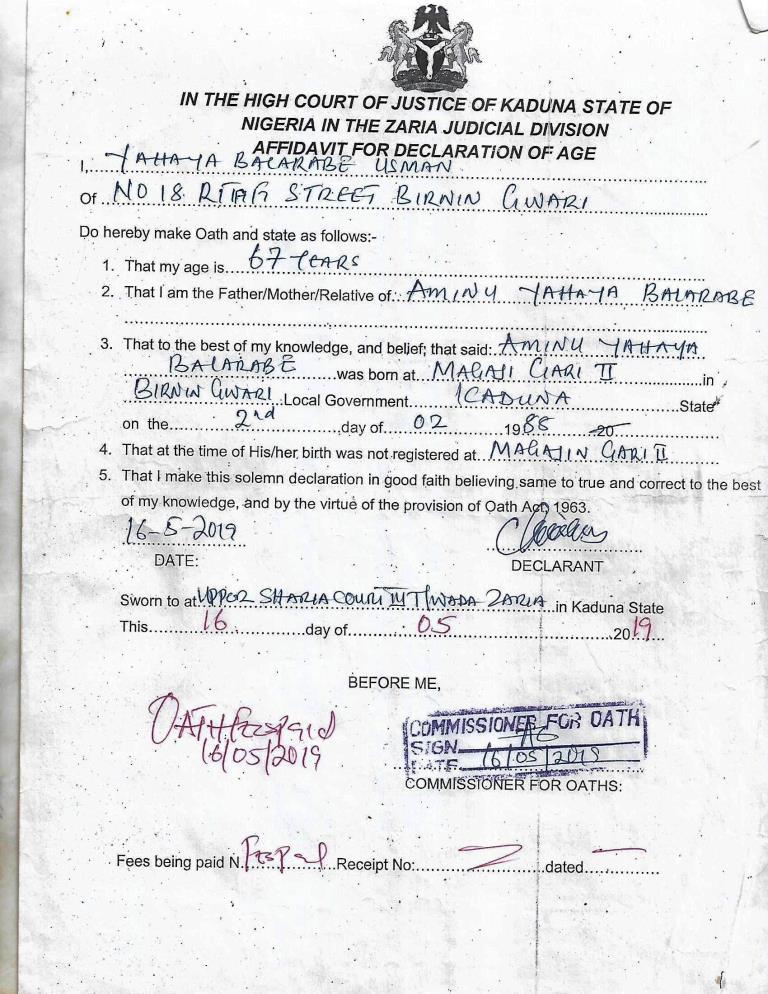 IN THE HIGH COURT OF JUSTICE OF KADUNA STATE OF
NIGERIA IN THE ZARIA JUDICIAL DIVISION
AFFIDAVIT FOR DECLARATION OF AGE
I, YAHAYA BALARABE USMAN
Of NO 18 STREET BIRNIN GWARI
Do hereby make Oath and state as follows:-
1. That my age is 67 YEARS
2. That I am the Father/Mother/Relative of: AMINU YAHAYA BALARABE
3. That to the best of my knowledge, and belief; that said: AMINU YAHAYA
BALARABE was born at MAGAJI GARI II in
BIRNIN GWARI Local Government KADUNA State
on the 2nd day of 02 1988 20
4. That at the time of His/her birth was not registered at MAGAJIN GARI II
5. That I make this solemn declaration in good faith believing same to true and correct to the best
of my knowledge, and by the virtue of the provision of Oath Act, 1963.
16-5-2019
DATE:
DECLARANT
Sworn to at UPPER SHARIA COURT III T/WADA ZARIA in Kaduna State
This 16 day of 05 2019
BEFORE ME,
OATH Fees paid
16/05/2019
COMMISSIONER FOR OATH
SIGN
DATE 16/05/2019
COMMISSIONER FOR OATHS:
Fees being paid N. Receipt No: dated